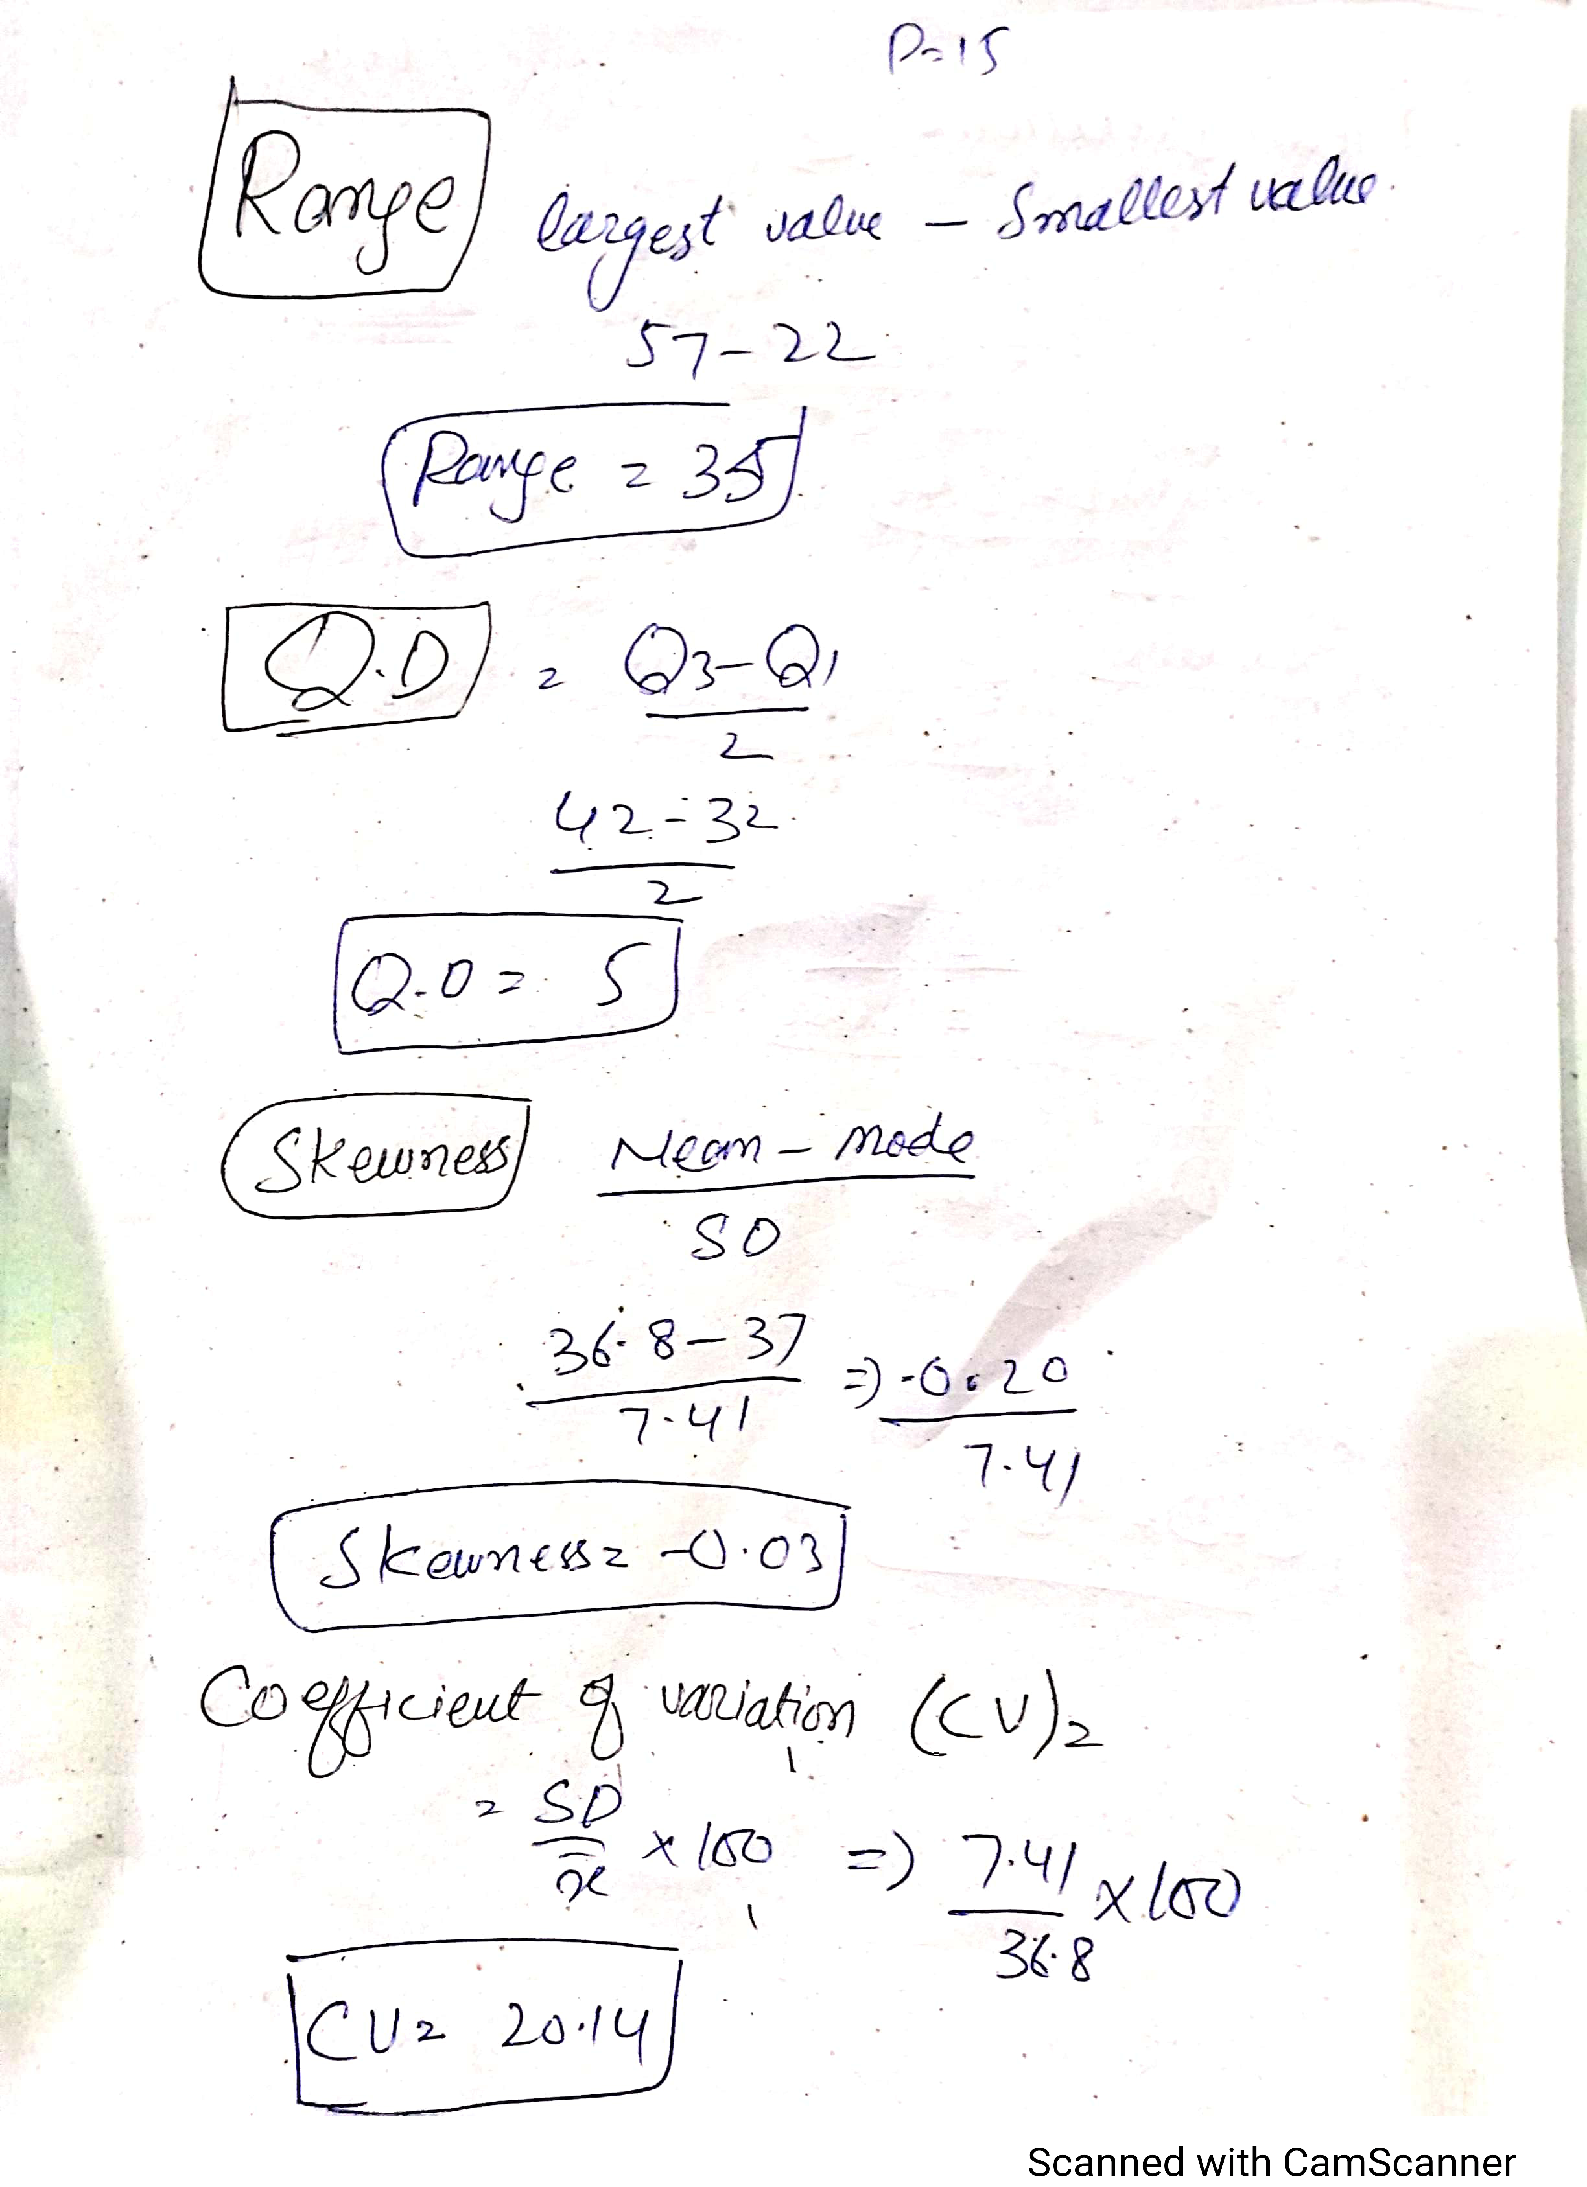 P=15
Range
largest value – Smallest value
57-22
Range = 35
Q.D = Q3-Q1
2
42-32
2
Q.D = 5
Skewness Mean – mode
SD
36.8-37 => -0.20
7.41 7.41
Skewness = -0.03
Coefficient of variation (CV) =
= SD/x̄ × 100 => 7.41/36.8 × 100
CV = 20.14
Scanned with CamScanner